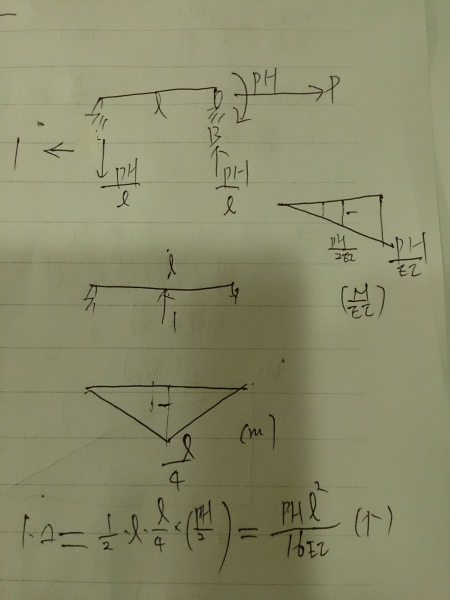 PH
P
l
B
PH/l
PH/l
PH/2EI
PH/EI
(M/EI)
l
1
(m)
l/4
1·Δ = 1/2 · l · l/4 × (PH/2) = PHl²/16EI (↑)